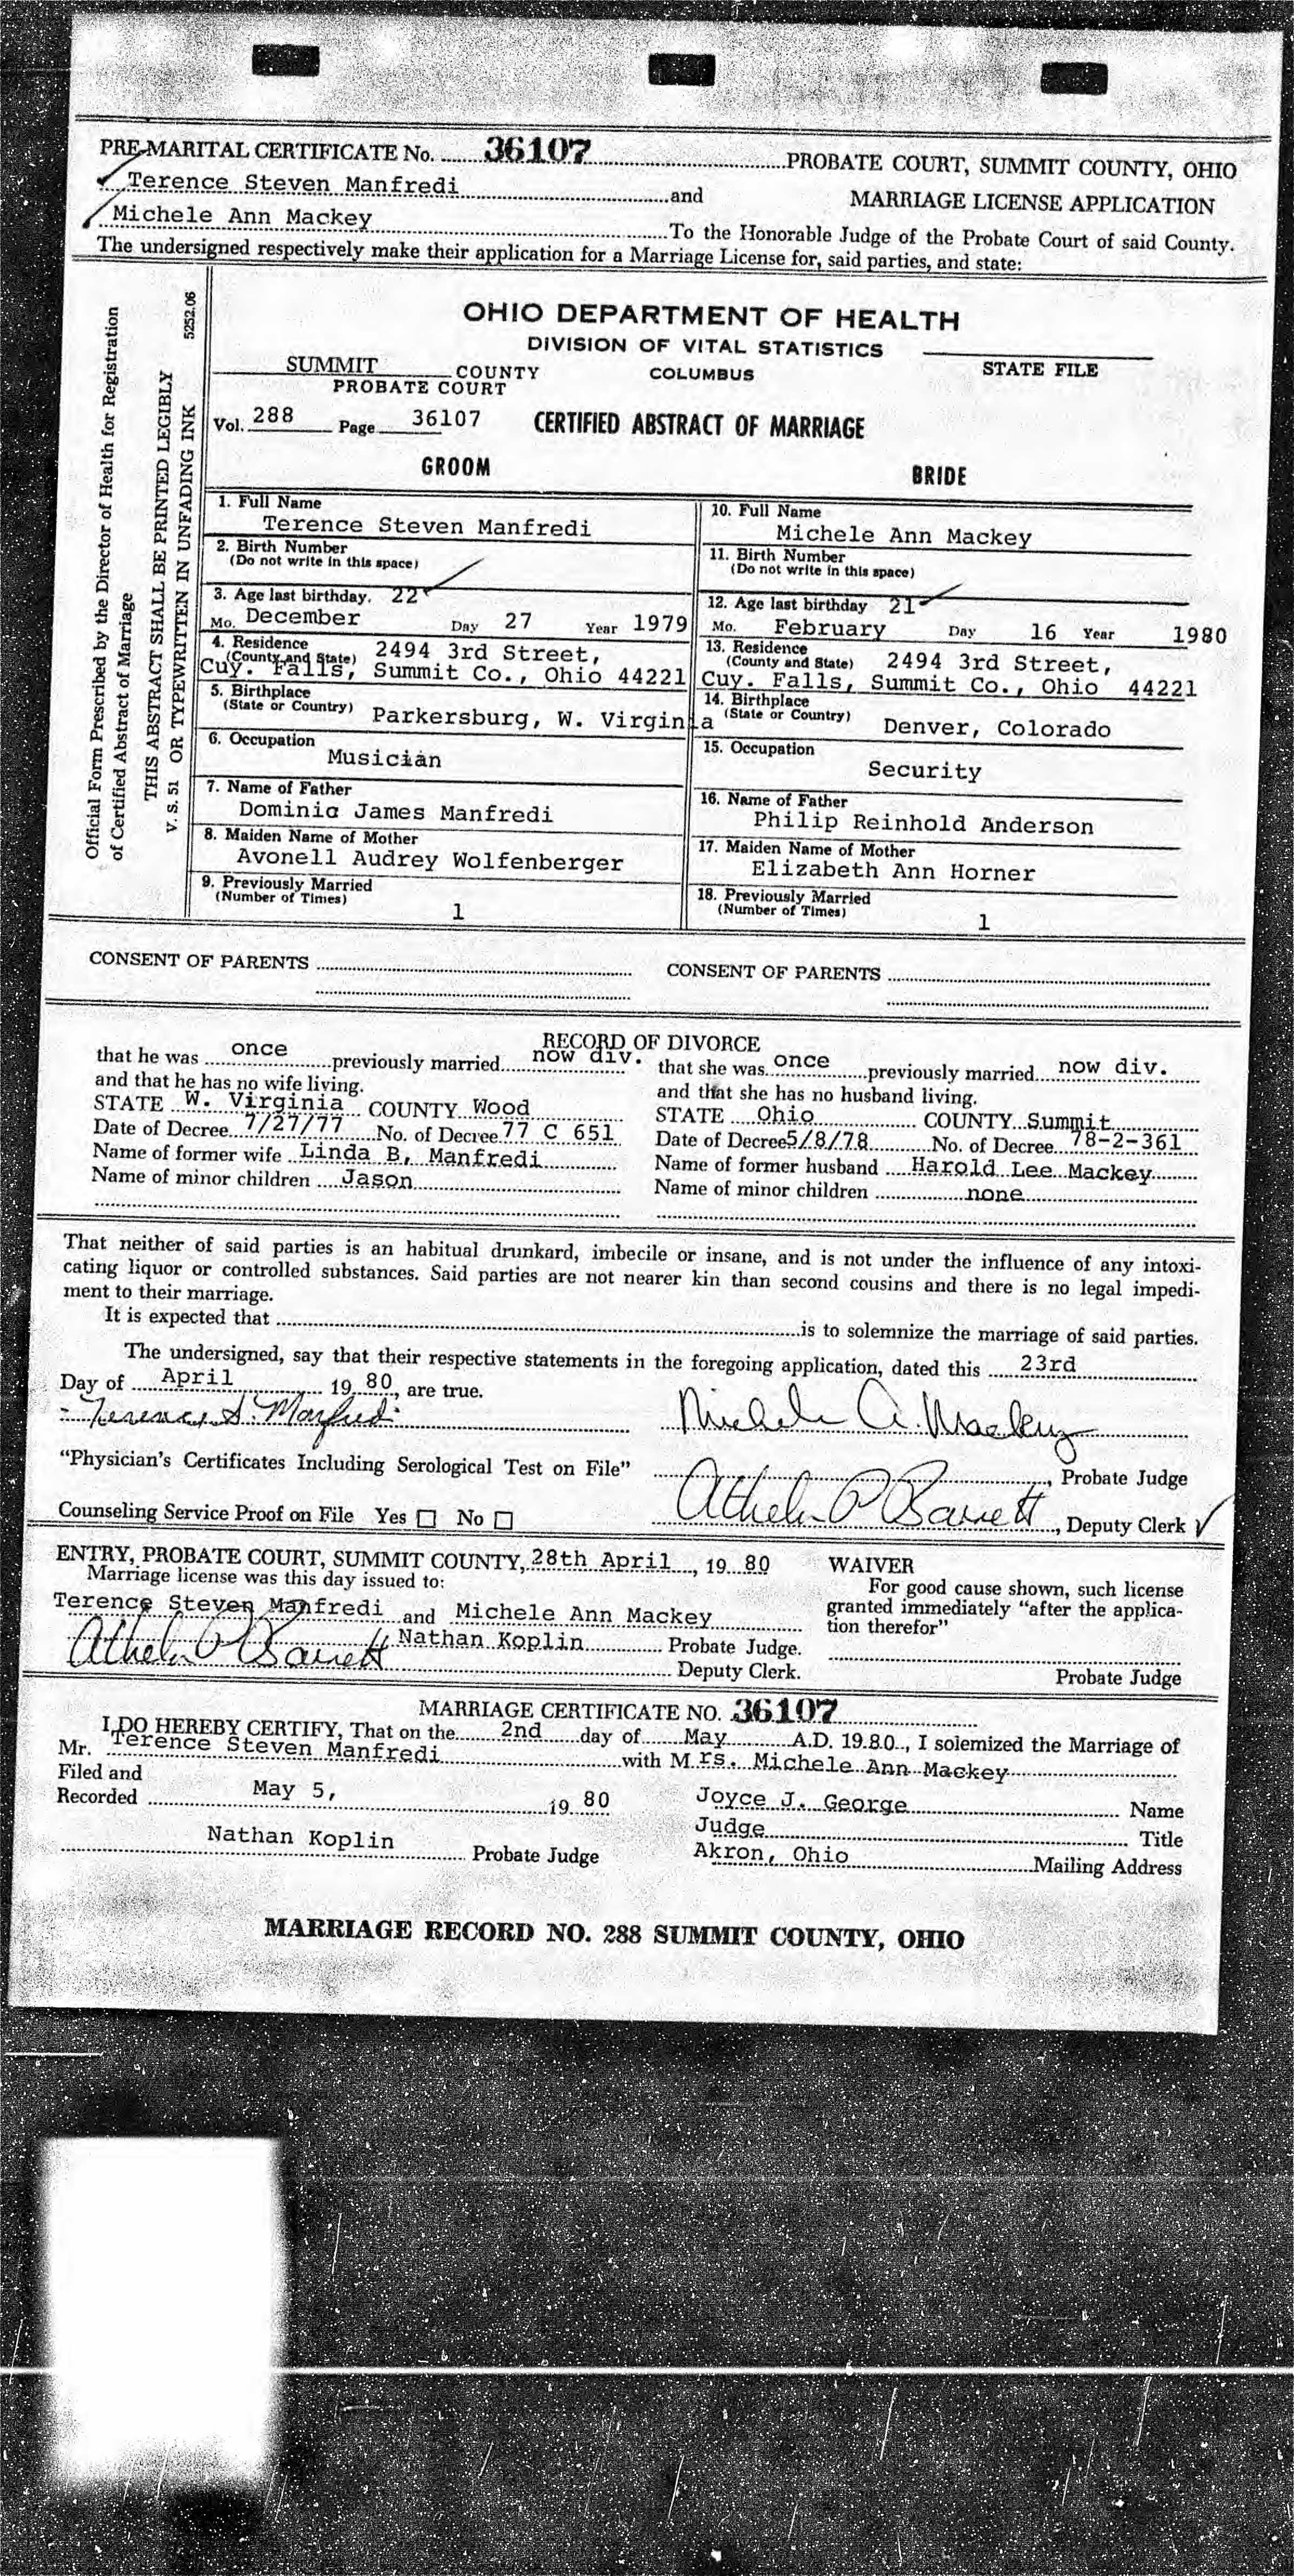 PRE-MARITAL CERTIFICATE No. 36107 PROBATE COURT, SUMMIT COUNTY, OHIO
Terence Steven Manfredi and MARRIAGE LICENSE APPLICATION
Michele Ann Mackey To the Honorable Judge of the Probate Court of said County.
The undersigned respectively make their application for a Marriage License for, said parties, and state:
Official Form Prescribed by the Director of Health for Registration
of Certified Abstract of Marriage
THIS ABSTRACT SHALL BE PRINTED LEGIBLY
V. S. 51 OR TYPEWRITTEN IN UNFADING INK 5252.06
OHIO DEPARTMENT OF HEALTH
DIVISION OF VITAL STATISTICS
SUMMIT COUNTY COLUMBUS STATE FILE
PROBATE COURT
Vol. 288 Page 36107 CERTIFIED ABSTRACT OF MARRIAGE
GROOM
BRIDE
1. Full Name
Terence Steven Manfredi
2. Birth Number
(Do not write in this space)
3. Age last birthday. 22
Mo. December Day 27 Year 1979
4. Residence
(County and State) 2494 3rd Street,
Cuy. Falls, Summit Co., Ohio 44221
5. Birthplace
(State or Country) Parkersburg, W. Virginia
6. Occupation
Musician
7. Name of Father
Dominic James Manfredi
8. Maiden Name of Mother
Avonell Audrey Wolfenberger
9. Previously Married
(Number of Times)
1
10. Full Name
Michele Ann Mackey
11. Birth Number
(Do not write in this space)
12. Age last birthday 21
Mo. February Day 16 Year 1980
13. Residence
(County and State) 2494 3rd Street,
Cuy. Falls, Summit Co., Ohio 44221
14. Birthplace
(State or Country) Denver, Colorado
15. Occupation
Security
16. Name of Father
Philip Reinhold Anderson
17. Maiden Name of Mother
Elizabeth Ann Horner
18. Previously Married
(Number of Times)
1
CONSENT OF PARENTS CONSENT OF PARENTS
RECORD OF DIVORCE
that he was once previously married now div.
and that he has no wife living.
STATE W. Virginia COUNTY Wood
Date of Decree 7/27/77 No. of Decree 77 C 651
Name of former wife Linda B, Manfredi
Name of minor children Jason
that she was once previously married now div.
and that she has no husband living.
STATE Ohio COUNTY Summit
Date of Decree 5/8/78 No. of Decree 78-2-361
Name of former husband Harold Lee Mackey
Name of minor children none
That neither of said parties is an habitual drunkard, imbecile or insane, and is not under the influence of any intoxi-
cating liquor or controlled substances. Said parties are not nearer kin than second cousins and there is no legal impedi-
ment to their marriage.
It is expected that is to solemnize the marriage of said parties.
The undersigned, say that their respective statements in the foregoing application, dated this 23rd
Day of April 19 80, are true.
Terence S. Manfredi Michele A. Mackey
"Physician's Certificates Including Serological Test on File" , Probate Judge
Counseling Service Proof on File Yes No Athelin P Barrett, Deputy Clerk
ENTRY, PROBATE COURT, SUMMIT COUNTY, 28th April, 19 80
Marriage license was this day issued to:
Terence Steven Manfredi and Michele Ann Mackey
Nathan Koplin Probate Judge.
Athelin P Barrett Deputy Clerk.
WAIVER
For good cause shown, such license
granted immediately "after the applica-
tion therefor"
Probate Judge
MARRIAGE CERTIFICATE NO. 36107
I DO HEREBY CERTIFY, That on the 2nd day of May A.D. 19 80, I solemized the Marriage of
Mr. Terence Steven Manfredi with Mrs. Michele Ann Mackey
Filed and
Recorded May 5, 19 80
Nathan Koplin Probate Judge
Joyce J. George Name
Judge Title
Akron, Ohio Mailing Address
MARRIAGE RECORD NO. 288 SUMMIT COUNTY, OHIO